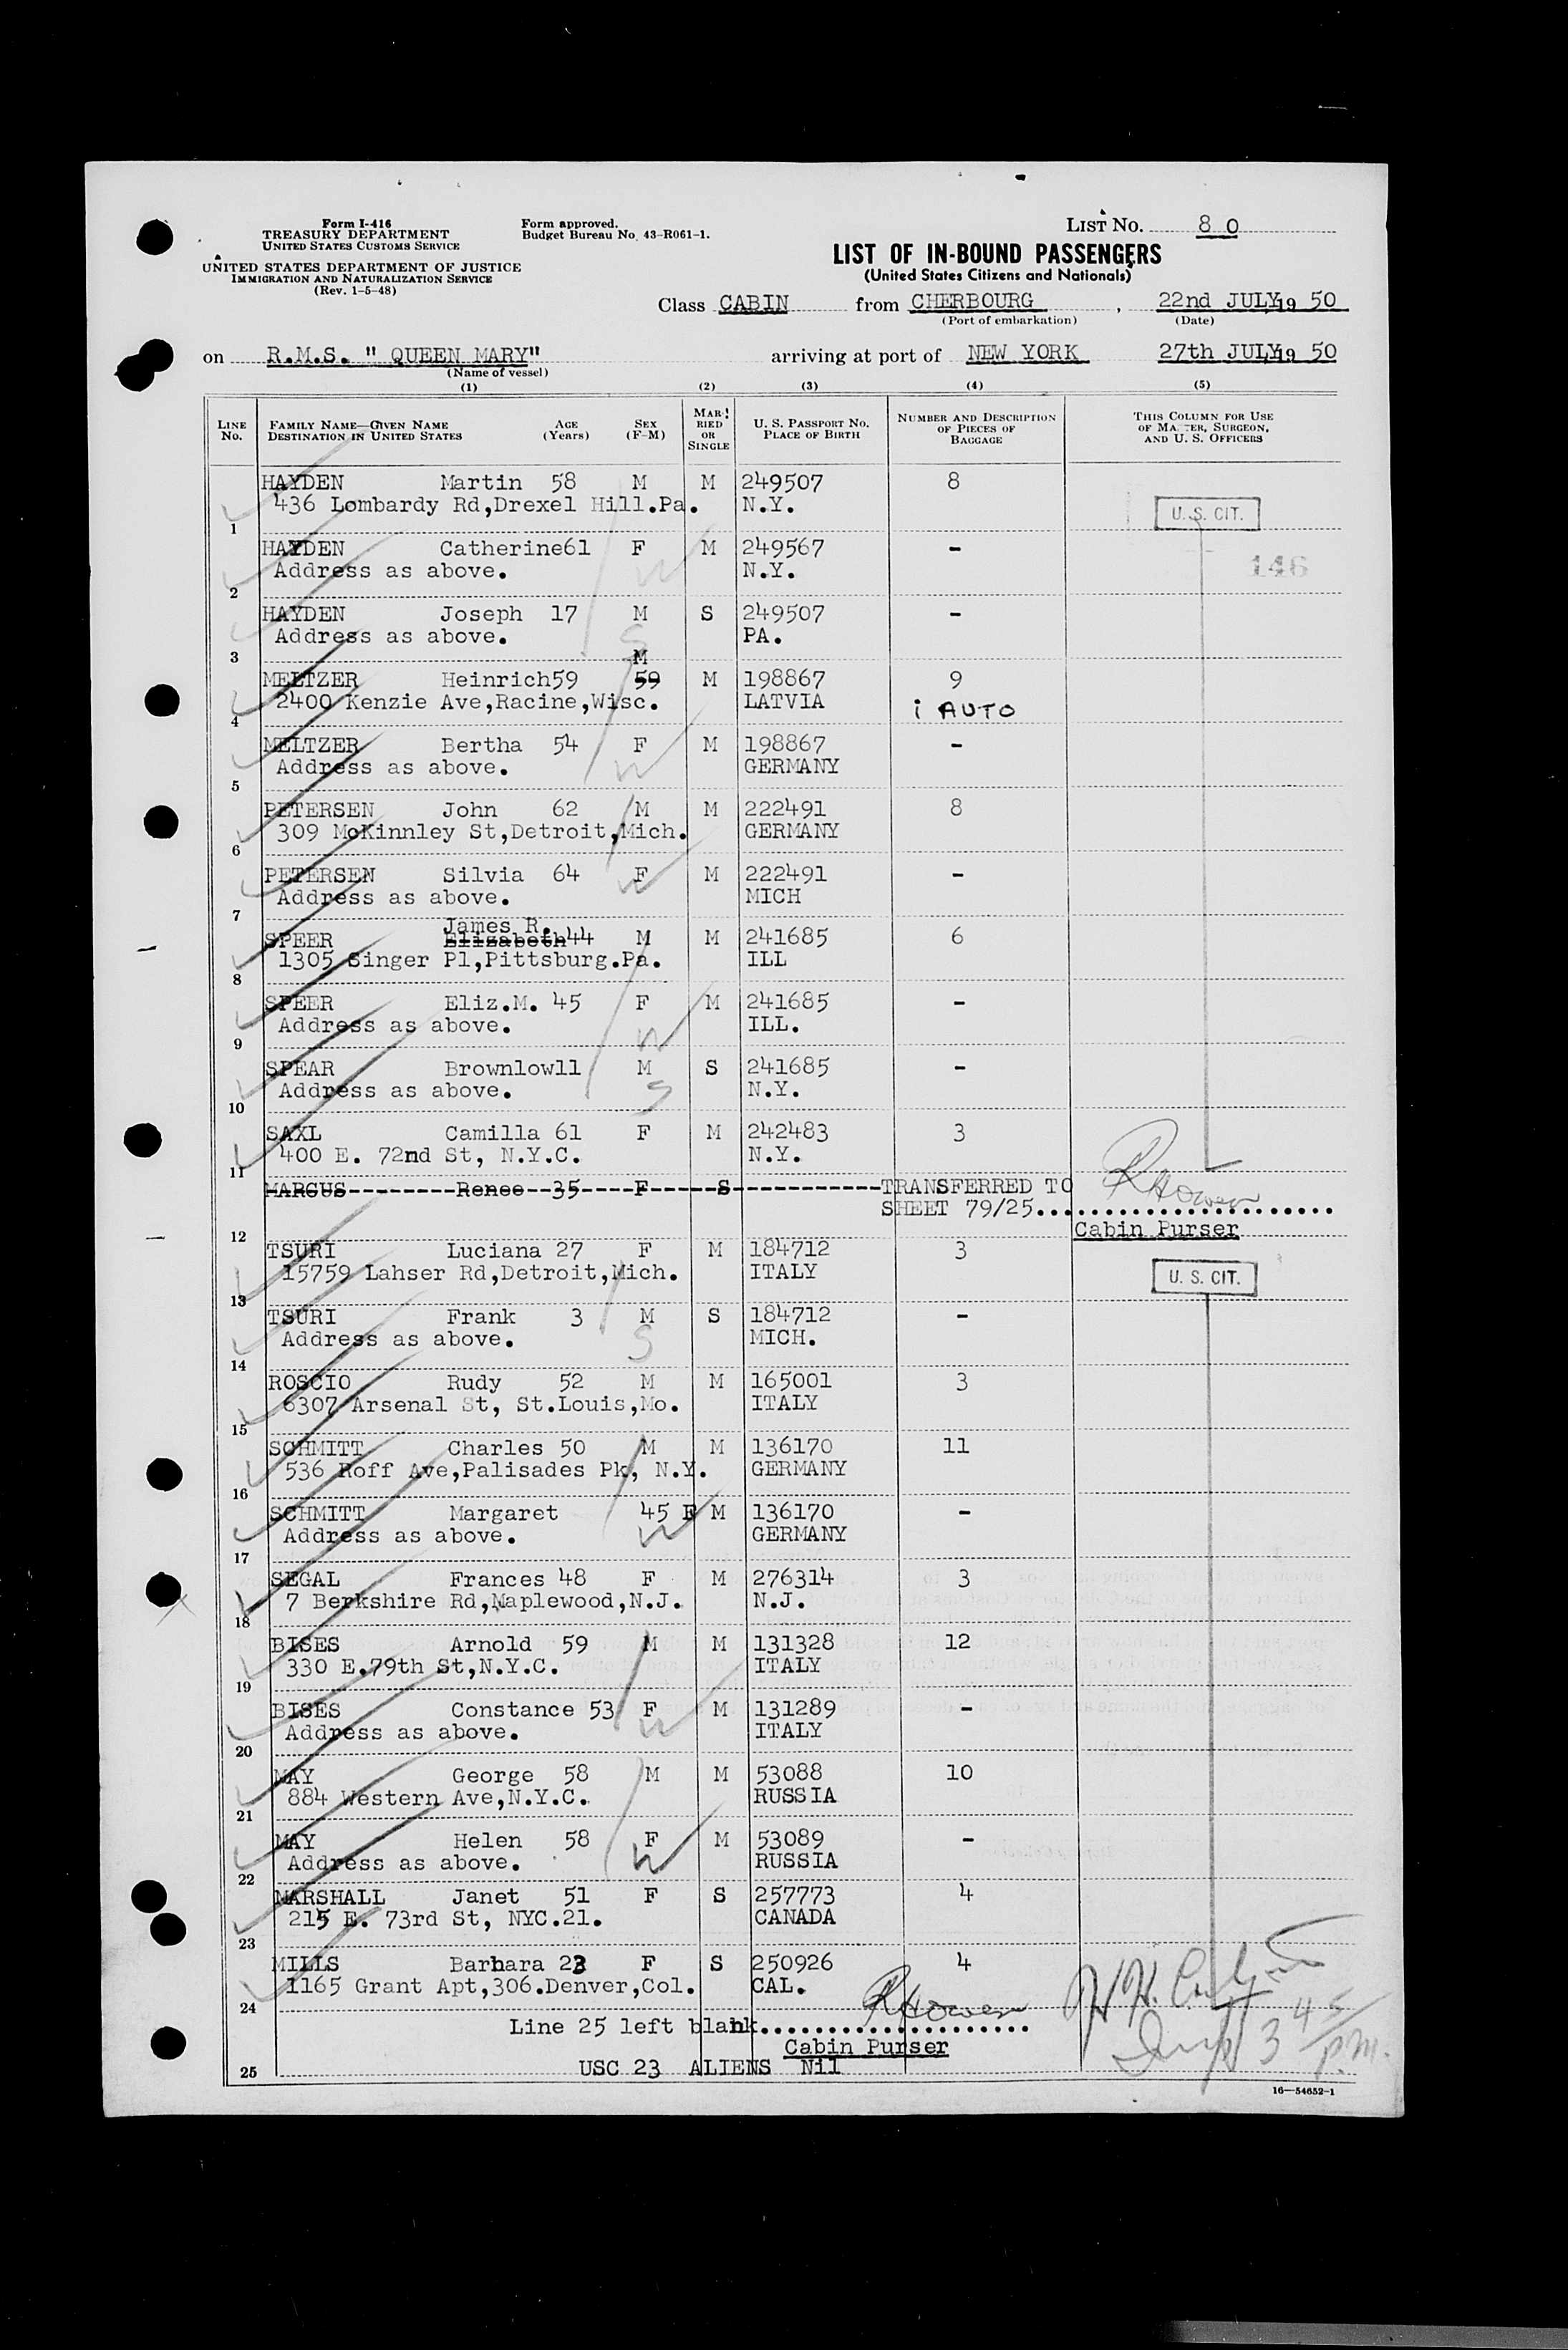 Form I-416
TREASURY DEPARTMENT
UNITED STATES CUSTOMS SERVICE
UNITED STATES DEPARTMENT OF JUSTICE
IMMIGRATION AND NATURALIZATION SERVICE
(Rev. 1-5-48)
Form approved.
Budget Bureau No. 43-R061-1.
LIST No. 80
LIST OF IN-BOUND PASSENGERS
(United States Citizens and Nationals)
Class CABIN from CHERBOURG, 22nd JULY 19 50
(Port of embarkation) (Date)
on R.M.S. " QUEEN MARY" arriving at port of NEW YORK 27th JULY 19 50
(Name of vessel)
(1) (2) (3) (4) (5)
LINE No. FAMILY NAME—GIVEN NAME DESTINATION IN UNITED STATES AGE (Years) SEX (F-M) MARRIED OR SINGLE U. S. PASSPORT No. PLACE OF BIRTH NUMBER AND DESCRIPTION OF PIECES OF BAGGAGE THIS COLUMN FOR USE OF MASTER, SURGEON, AND U. S. OFFICERS
HAYDEN Martin 58 M M 249507 8
1 436 Lombardy Rd,Drexel Hill.Pa. N.Y. U. S. CIT.
HAYDEN Catherine61 F M 249567 -
2 Address as above. N.Y. 146
HAYDEN Joseph 17 M S 249507 -
3 Address as above. PA.
M
MELTZER Heinrich59 59 M 198867 9
4 2400 Kenzie Ave,Racine,Wisc. LATVIA i AUTO
MELTZER Bertha 54 F M 198867 -
5 Address as above. GERMANY
PETERSEN John 62 M M 222491 8
6 309 McKinnley St,Detroit,Mich. GERMANY
PETERSEN Silvia 64 F M 222491 -
7 Address as above. MICH
James R.
SPEER Elizabeth44 M M 241685 6
8 1305 Singer Pl,Pittsburg.Pa. ILL
SPEER Eliz.M. 45 F M 241685 -
9 Address as above. ILL.
SPEAR Brownlow11 M S 241685 -
10 Address as above. N.Y.
SAXL Camilla 61 F M 242483 3
11 400 E. 72nd St, N.Y.C. N.Y.
MARCUS Renee 35 F S TRANSFERRED TO
SHEET 79/25.... RHowen
12 Cabin Purser
TSURI Luciana 27 F M 184712 3
13 15759 Lahser Rd,Detroit,Mich. ITALY U. S. CIT.
TSURI Frank 3 M S 184712 -
14 Address as above. MICH.
ROSCIO Rudy 52 M M 165001 3
15 6307 Arsenal St, St.Louis,Mo. ITALY
SCHMITT Charles 50 M M 136170 11
16 536 Roff Ave,Palisades Pk, N.Y. GERMANY
SCHMITT Margaret 45 F M 136170 -
17 Address as above. GERMANY
SEGAL Frances 48 F M 276314 3
18 7 Berkshire Rd,Maplewood,N.J. N.J.
BISES Arnold 59 M M 131328 12
19 330 E.79th St,N.Y.C. ITALY
BISES Constance 53 F M 131289 -
20 Address as above. ITALY
MAY George 58 M M 53088 10
21 884 Western Ave,N.Y.C. RUSSIA
MAY Helen 58 F M 53089 -
22 Address as above. RUSSIA
MARSHALL Janet 51 F S 257773 4
23 215 E. 73rd St, NYC.21. CANADA
MILLS Barbara 23 F S 250926 4
24 1165 Grant Apt,306.Denver,Col. CAL.
Line 25 left blank.... RHowen
Cabin Purser
25 USC 23 ALIENS Nil
Insp 3 45 p.m.
16—54652-1